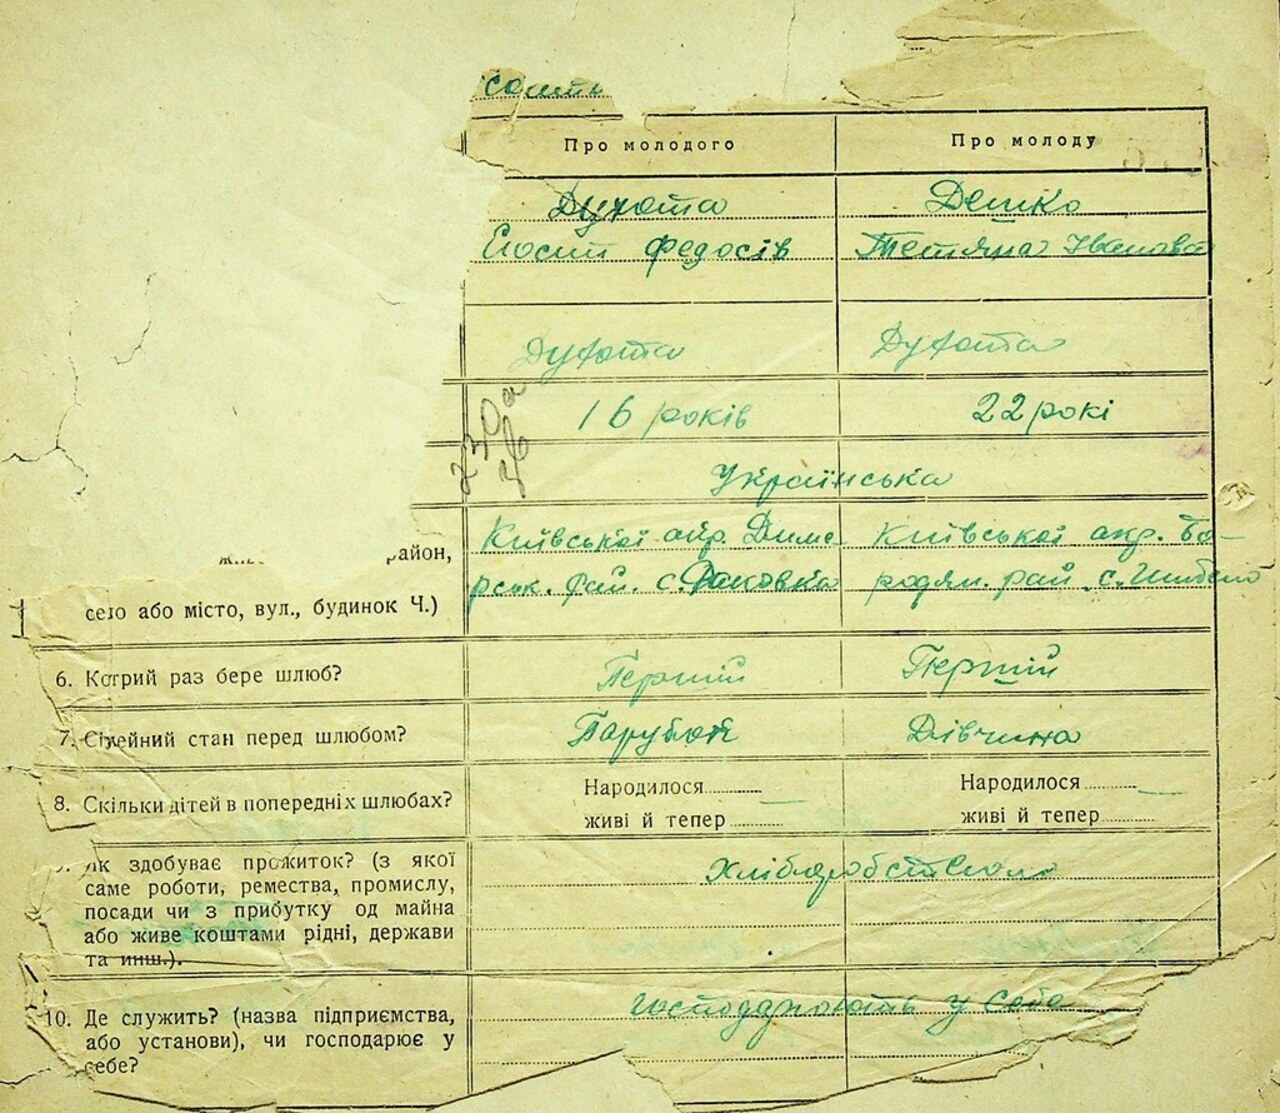 Про молодого
Про молоду
Духота
Демко
Йосип Федосів
Тетяна Іванова
Духота
Духота
16 років
22 рокі
Українська
айон,
село або місто, вул., будинок Ч.)
Київської окр. Диме-
рськ. рай. с. Раковка
Київської окр. Бо-
родян. рай. с.
6. Котрий раз бере шлюб?
Перший
Перший
7. Сімейний стан перед шлюбом?
Парубок
Дівчина
8. Скільки дітей в попередніх шлюбах?
Народилося
живі й тепер
Народилося
живі й тепер
як здобуває прожиток? (з якої
саме роботи, ремества, промислу,
посади чи з прибутку од майна
або живе коштами рідні, держави
та инш.).
Хліборобством
10. Де служить? (назва підприємства,
або установи), чи господарює у
себе?
Господарюють у себе